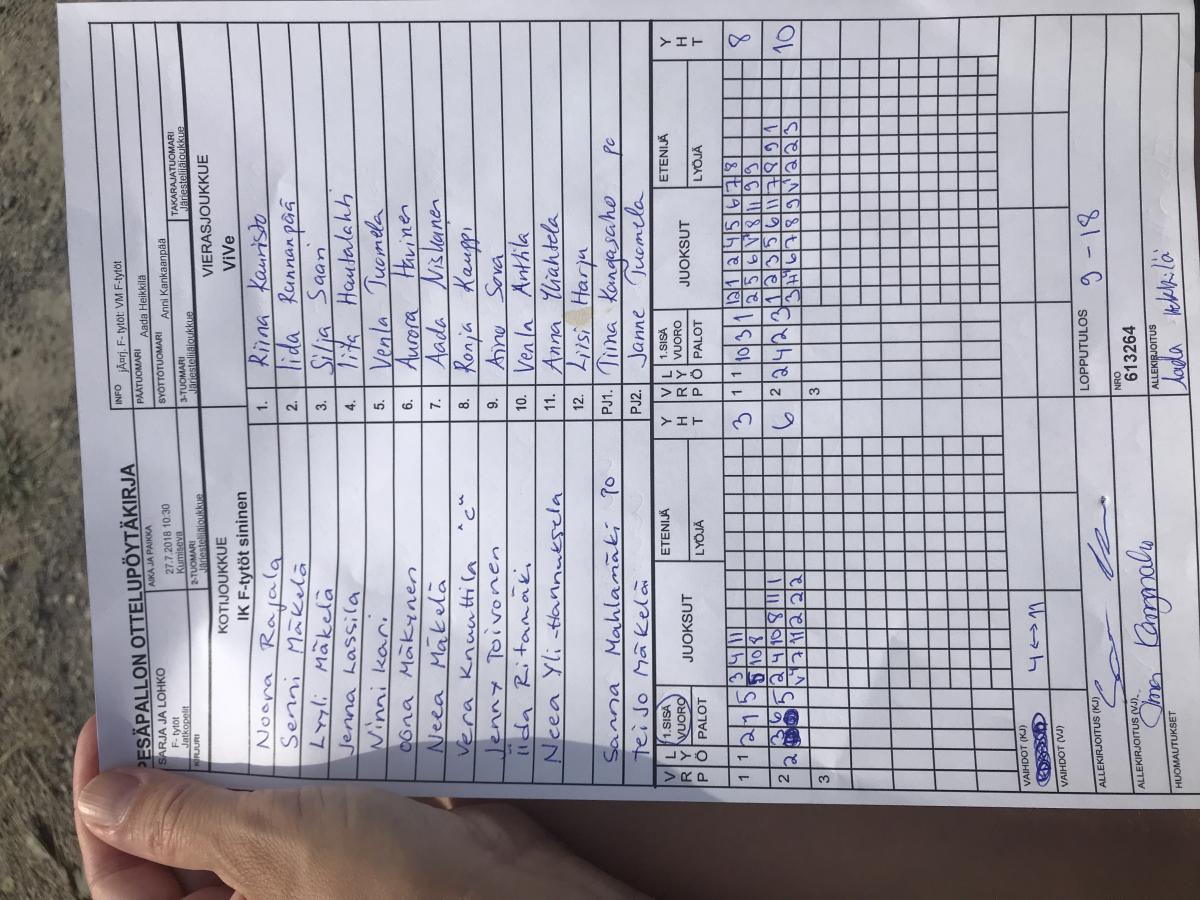 PESÄPALLON OTTELUPÖYTÄKIRJA
INFO jÄ¤rj, F- tytöt: VM F-tytöt
SARJA JA LOHKO
F- tytöt
Jatkopelit
AIKA JA PAIKKA
27.7.2018 10:30
Kumiseva
PÄÄTUOMARI Aada Heikkilä
SYÖTTÖTUOMARI Anni Kankaanpää
KIRJURI
2-TUOMARI
Järjestelijäloukkue
3-TUOMARI
Järiestelijäloukkue
TAKARAJATUOMARI
Järiestelijäloukkue
KOTIJOUKKUE VIERASJOUKKUE
IK F-tytöt sininen ViVe
Noora Rajala 1. Riina Kauristo
Senni Mäkelä 2. Iida Rannanpää
Lyyli Mäkelä 3. Silja Saari
Jenna Lassila 4. Iita Hautalahti
Vinni Kari 5. Venla Tuomela
Oona Mäkynen 6. Aurora Havinen
Neea Mäkelä 7. Aada Niskanen
Vera Knuuttila "C" 8. Ronja Kauppi
Jenny Toivonen 9. Aino Sova
Iida Ritamäki 10. Venla Anttila
Neea Yli-Hannuksela 11. Anna Yliahtela
12. Liisi Harju
Sanna Mahlamäki PJ1. Tiina Kangasaho
Teijo Mäkelä PJ2. Janne Tuomela
V R P L Y Ö 1.SISÄ VUORO PALOT JUOKSUT ETENIJÄ LYÖJÄ Y H T V R P L Y Ö 1.SISÄ VUORO PALOT JUOKSUT ETENIJÄ LYÖJÄ Y H T
1 1 2 1 5 3 4 11 3 1 1 10 3 1 12 1 2 4 5 6 7 8 8
5 10 8 2 5 6 V 8 11 9 9
2 2 6 5 2 4 10 8 11 1 6 2 2 4 2 3 1 2 3 5 6 11 7 8 9 1 10
V 4 7 11 2 2 2 3 4 6 7 8 9 V 2 2 3
3 3
VAIHDOT (KJ) 4 <-> 11
VAIHDOT (VJ)
ALLEKIRJOITUS (KJ)
LOPPUTULOS 9 - 18
ALLEKIRJOITUS (VJ). Tiina Kangasaho
NRO
613264
HUOMAUTUKSET
ALLEKIRJOITUS
Aada Heikkilä